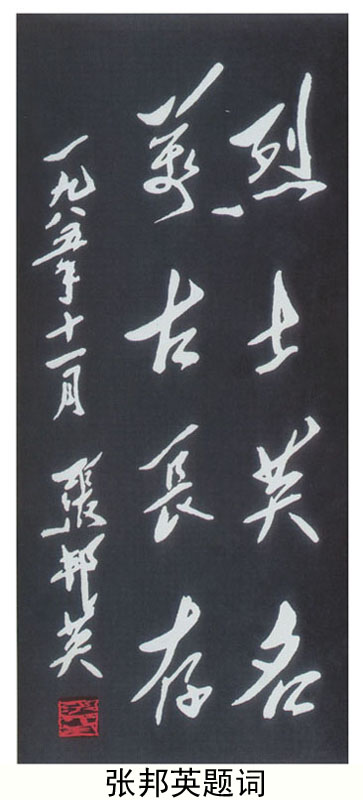 烈士英名
萬古長存
一九八五年十一月 張邦英
张邦英题词